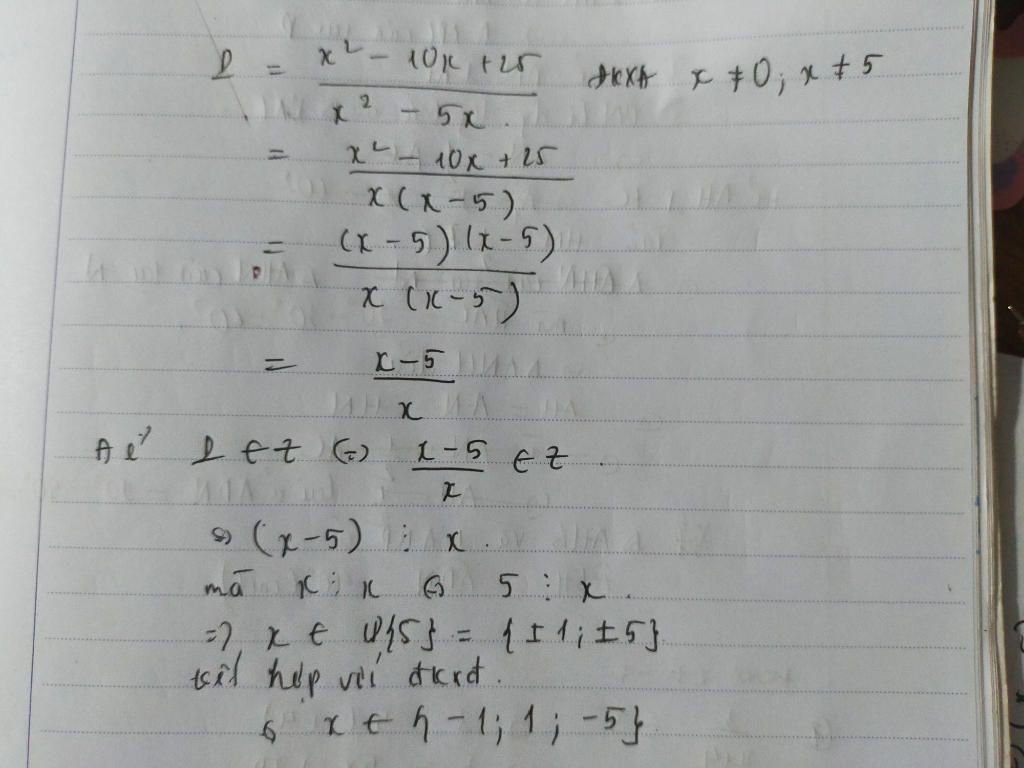 P = (x² - 10x + 25)/(x² - 5x) ĐKXĐ x ≠ 0; x ≠ 5
= (x² - 10x + 25)/(x(x - 5))
= ((x - 5)(x - 5))/(x(x - 5))
= (x - 5)/x
Để P ∈ Z (=) (x - 5)/x ∈ Z.
(x - 5) ⋮ x.
mà x ⋮ x ⇔ 5 ⋮ x.
=> x ∈ Ư{5} = {±1; ±5}
kết hợp với đkxđ.
x ∈ {-1; 1; -5}